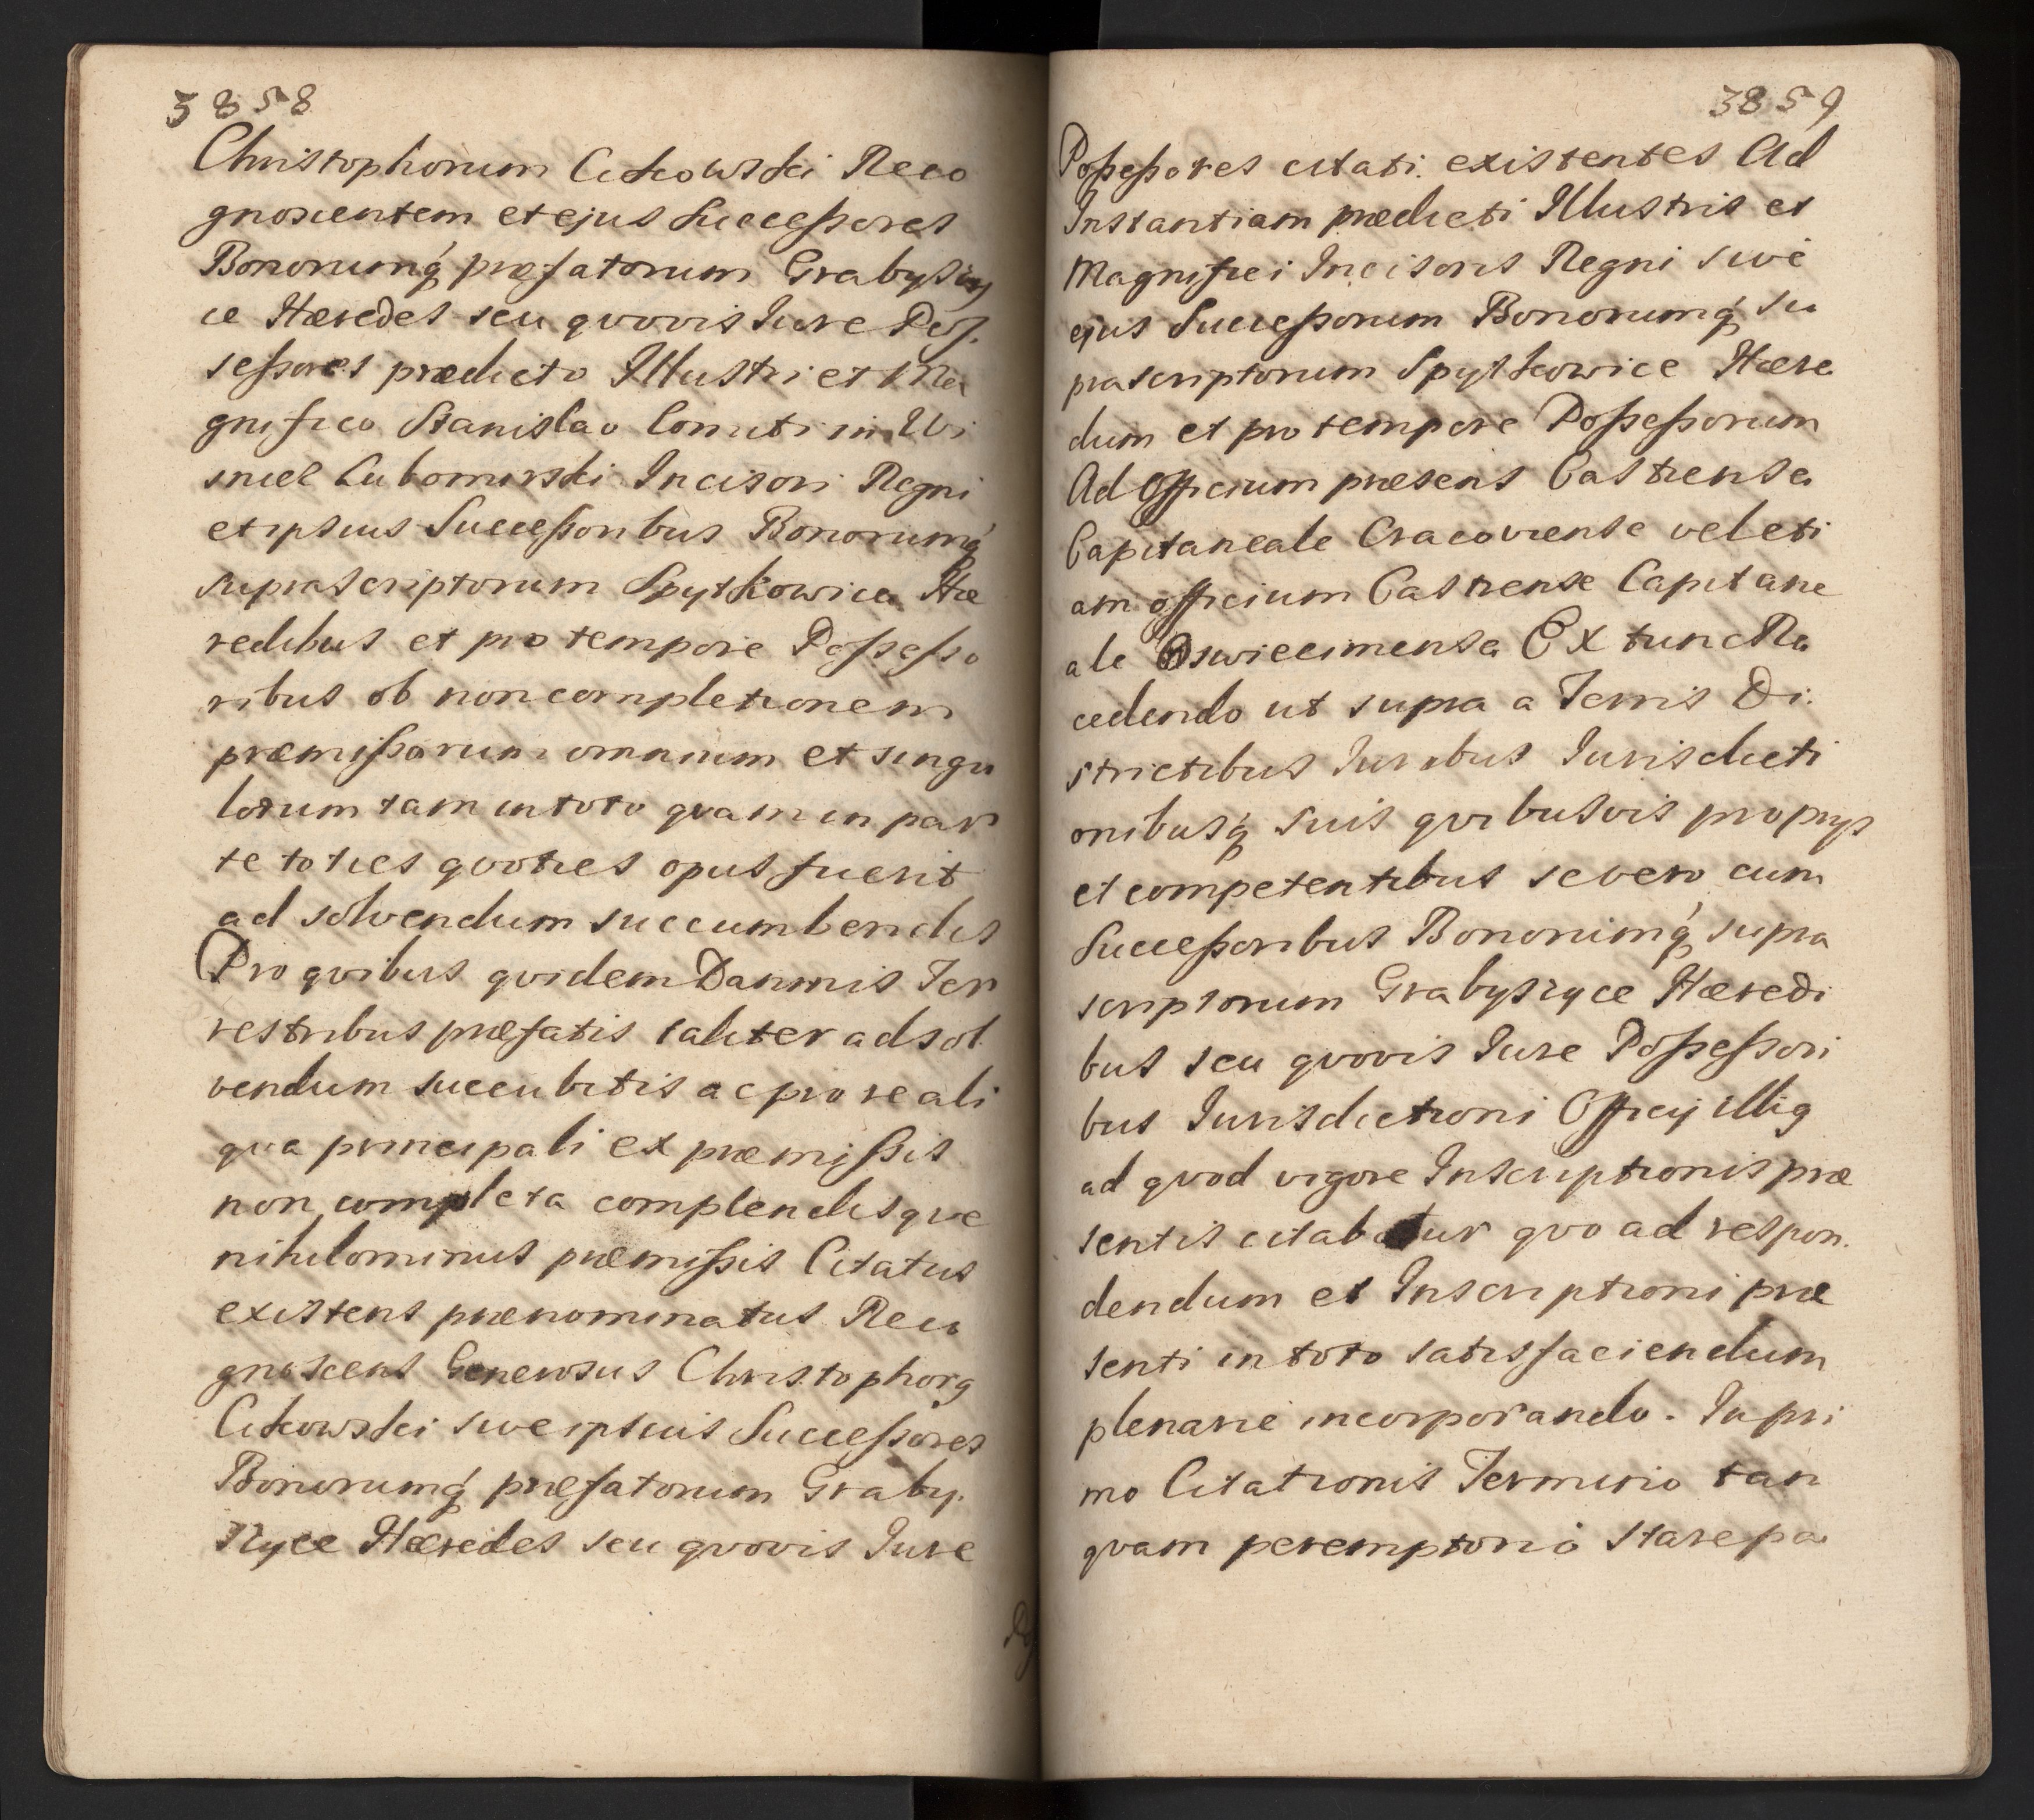 3858
Christophorum Cikowski Reco
gnoscentem et ejus Successores
Bonorumq́ præfatorum Grabyszy
ce Hæredes seu qvovis Jure Pos
sessores prædicto Illustri et Ma
gnifico Stanislao Comiti in Wi
snicz Lubomirski Incisori Regni
et ipsius Successoribus Bonorumq́
suprascriptorum Spytkowice Hæ
redibus et pro tempore Possesso
ribus ob non completionem
præmissorum omnium et singu
lorum tam in toto qvam in par
te toties qvoties opus fuerit
ad solvendum succumbendis
Pro qvibus qvidem Damnis Ter
restribus præfatis taliter ad sol
vendum succubitis ac pro re ali
qva principali ex præmissis
non completa complendisqve
nihilominus præmissis Citatus
existens prænominatus Reco
gnoscens Generosus Christophorg
Cikowski sive ipsius Successores
Bonorumq́ præfatorum Graby.
szyce Hæredes seu qvovis Jure
3859
Possessores citati existentes Ad
Instantiam prædicti Illustris et
Magnifici Incisoris Regni sive
ejus Successorum Bonorumq́ su
prascriptorum Spytkowice Hære
dum et pro tempore Possessorum
Ad Officium præsens Castrense
Capitaneale Cracoviense vel eti
am officium Castrense Capitane
ale Oswiecimense Ex tunc Re
cedendo ut supra a Terris Di.
strictibus Juribus Jurisdicti
onibusq́ suis qvibusvis proprys
et competentibus se vero cum
Successoribus Bonorumq́ supra
scriptorum Grabyszyce Hæredi
bus seu qvovis Jure Possessori
bus Jurisdictioni Officij illig
ad qvod vigore Inscriptionis præ
sentis citabitur qvo ad respon.
dendum et Inscriptioni præ
senti in toto satisfaciendum
plenarie incorporando. In pri
mo Citationis Termino tan
qvam peremptorio stare pa